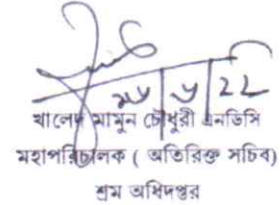 ২৮/৬/২২
খালেদ মামুন চৌধুরী এনডিসি
মহাপরিচালক ( অতিরিক্ত সচিব)
শ্রম অধিদপ্তর